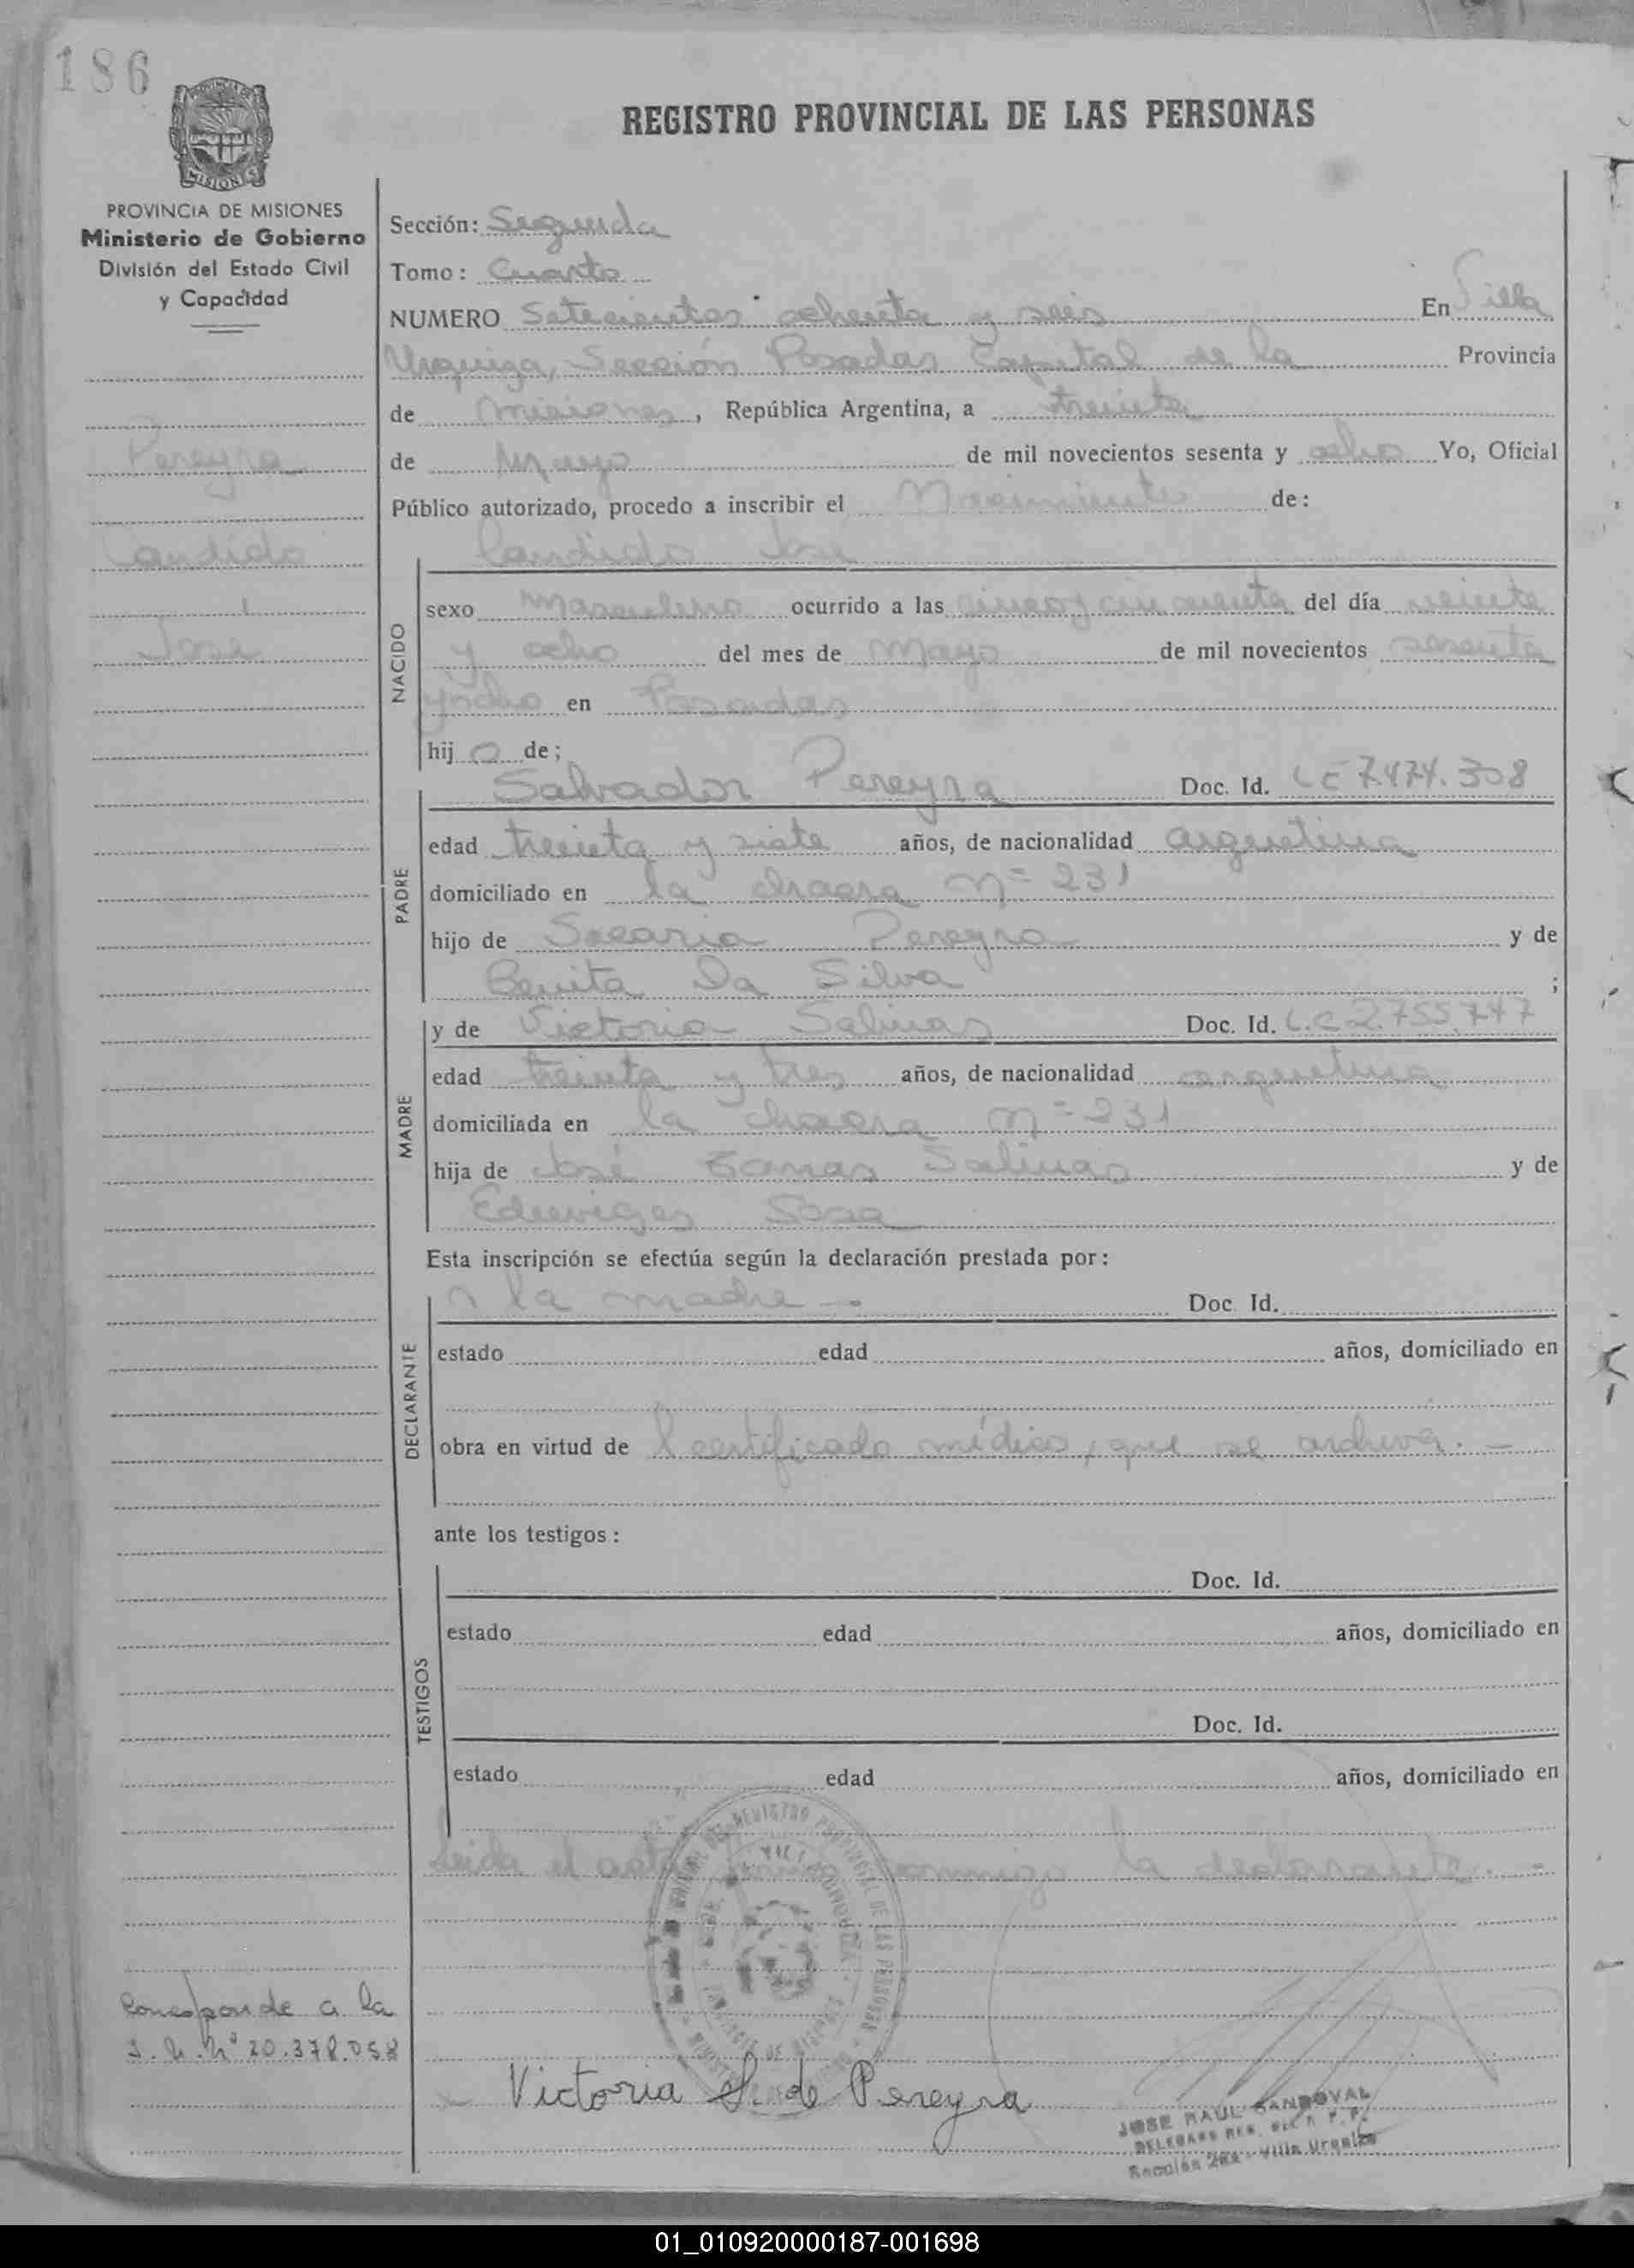 186
REGISTRO PROVINCIAL DE LAS PERSONAS
MISIONES
PROVINCIA DE MISIONES
Ministerio de Gobierno
División del Estado Civil
y Capacidad
Pereyra
Candido
José
Sección: Segunda
Tomo: Cuarto
NUMERO Setecientos ochenta y seis En Villa
Urquiza, Sección Posadas Capital de la Provincia
de Misiones, República Argentina, a treinta
de Mayo de mil novecientos sesenta y ocho Yo, Oficial
Público autorizado, procedo a inscribir el Nacimiento de:
Candido José
NACIDO
sexo Masculino ocurrido a las cinco y cincuenta del día veinte
y ocho del mes de Mayo de mil novecientos sesenta
y ocho en Posadas
hijo de;
PADRE
Salvador Pereyra Doc. Id. LE 7.474.308
edad treinta y siete años, de nacionalidad argentina
domiciliado en la chacra nº 231
hijo de Pereyra y de
Benita Da Silva ;
MADRE
y de Victoria Salinas Doc. Id. L.C 2.755.747
edad treinta y tres años, de nacionalidad argentina
domiciliada en la chacra nº 231
hija de José Tomas Salinas y de
Eduviges Sosa
Esta inscripción se efectúa según la declaración prestada por:
DECLARANTE
la madre — Doc Id.
estado edad años, domiciliado en
obra en virtud de l certificado médico, que se archiva. —
ante los testigos:
TESTIGOS
Doc. Id.
estado edad años, domiciliado en
Doc. Id.
estado edad años, domiciliado en
Leida el acta firma conmigo la declarante. —
REGISTRO PROVINCIAL DE LAS PERSONAS
Corresponde a la
nº 20.378.058
Victoria S. de Pereyra
JOSE RAUL SANDOVAL
DELEGADO
Sección 2da - Villa Urquiza
01_010920000187-001698